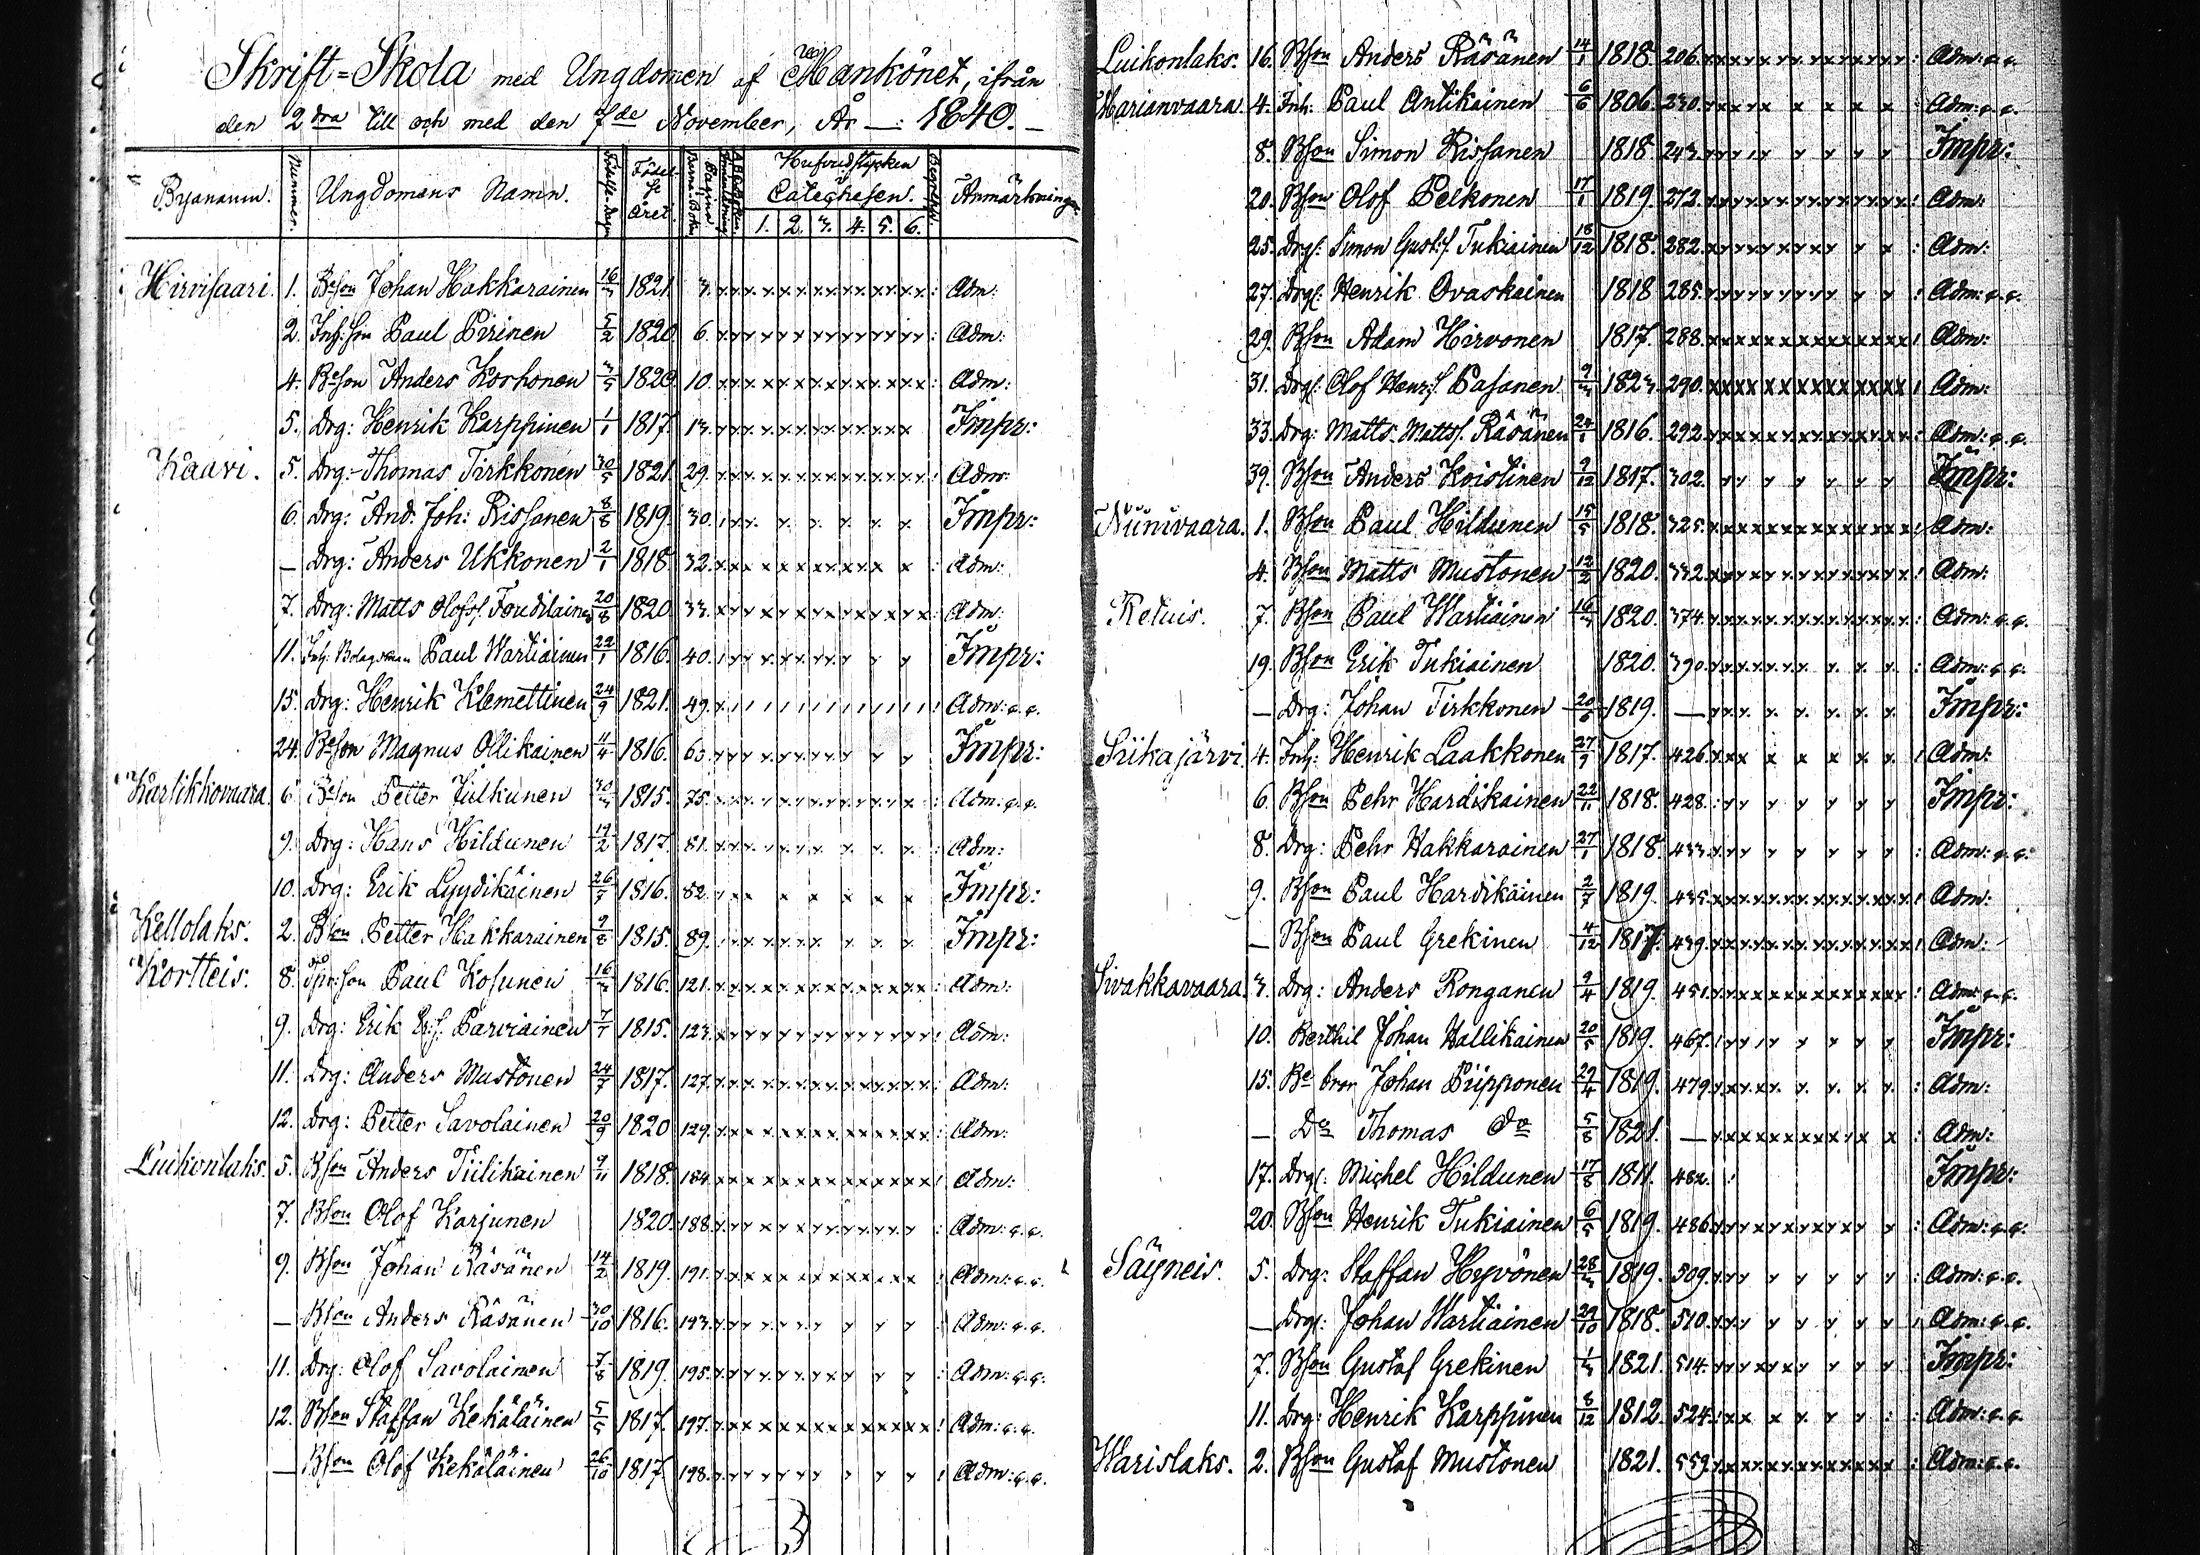 Skrift-Skola med Ungdomen af Mankönet, ifrån
den 2dra till och med den 7de November, År — 1840. —
Byanamn. Nummer. Ungdomens Namn. Födelse Året. Pagina Hufvudstycken i Catechesen. Anmärkningar
1. 2. 3. 4. 5. 6.
Hirvisaari 1. Bdeson Johan Hakkarainen 16/3 1821. 3. Adm:
2. Inh: son Paul Pirinen 5/2 1820 6. Adm:
4. Bdeson Anders Korhonen 3/5 1820. 10. Adm:
5. Drg: Henrik Karppinen 1/1 1817. 13. Impr:
Kaavi. 5. Drg: Thomas Tirkkonen 30/5 1821. 29. Adm:
6. Drg: And. Joh: Rissanen 8/8 1819. 30. Impr:
— Drg: Anders Ukkonen 2/1 1818. 32. Adm:
7. Drg: Matts Olofss. 20/8 1820. 33. Adm:
11. Inh: Bolagsman Paul Wartiainen 22/1 1816. 40. Impr:
15. Drg: Henrik Klemettinen 24/9 1821. 49. Adm: q. q.
24. Bdeson Magnus Ollikainen 11/4 1816. 63. Impr:
Kärtikkovaara 6 Bdeson Petter Julkunen 30/3 1815. 75. Adm: q. q.
9. Drg: Hans Hildunen 19/2 1817. 81. Adm:
10. Drg: Erik Lyydikäinen 26/7 1816. 82. Impr:
Kellolaks. 2. Bson Petter Hakkarainen 9/8 1815. 89. Impr:
Kortteis. 8. Spr: son Paul Kosunen 16/3 1816. 121. Adm:
9. Drg: Erik Er:s. Parviainen 7/1 1815. 123. Adm:
11. Drg: Anders Mustonen 24/7 1817. 127. Adm:
12. Drg: Petter Savolainen 20/9 1820 129. Adm:
Luikonlaks. 5. Bson Anders Tiilikainen 9/11 1818. 184. Adm:
7. Bson Olof Karjunen 1820. 188. Adm: q. q.
9. Bson Johan Räsänen 14/2 1819. 191. Adm: q. q.
— Bson Anders Räsänen 30/10 1816. 193. Adm: q. q.
11. Drg: Olof Savolainen 7/8 1819. 195. Adm: q. q.
12. Bson Staffan Kekäläinen 5/5 1817. 197. Adm: q. q.
— Bson Olof Kekäläinen 26/10 1817. 198. Adm: q. q.
Luikonlaks. 16. Bson Anders Räsänen 14/1 1818. 206. Adm: q. q.
Marianvaara. 4. Inh: Paul Antikainen 6/6 1806. 230. Adm: q. q.
8. Bson Simon Rissanen 1818 243. Impr:
20. Bson Olof Pelkonen 17/1 1819. 272. Adm:
25. Drgs: Simon Gust:s. Tukiainen 18/12 1818. 282. Adm:
27. Drgs: Henrik Ovaskainen 1818 285. Adm: q. q.
29. Bson Adam Hirvonen 1817. 288. Adm:
31. Drgs: Olof Henr:s Pasanen 9/3 1823. 290. Adm:
33. Drg: Matts Mattss. Räsänen 24/1 1816. 292. Adm: q. q.
39. Bson Anders Koistinen 9/12 1817. 302. Impr:
Niinivaara. 1. Bson Paul Hildunen 15/5 1818. 325. Adm:
4. Bson Matts Mustonen 12/2 1820. 332. Adm:
Retuis. 7. Bson Paul Wartiainen 16/3 1820. 374. Adm: q. q.
19. Bson Erik Tukiainen 1820. 390. Adm: q. q.
— Drg: Johan Tirkkonen 20/6 1819. — Impr:
Siikajärvi 4. Inh: Henrik Laakkonen 27/9 1817. 426. Adm:
6. Bson Pehr Hardikainen 22/11 1818. 428. Impr:
8. Drg: Pehr Hakkarainen 27/1 1818 433. Adm: q. q.
9. Bson Paul Hardikainen 2/7 1819. 435. Adm:
— Bson Paul Grekinen 4/12 1817. 439. Adm:
Sivakkavaara 3. Drg: Anders Ronganen 9/4 1819. 451. Adm: q. q.
10. Berthil Johan Hallikainen 20/5 1819. 467. Impr:
15. Bde bror Johan Piipponen 29/4 1819. 479. Adm:
— Do Thomas Do 5/8 1821. — Adm:
17. Drgs. Michel Hildunen 17/8 1811. 482. Impr:
20. Bson Henrik Tukiainen 6/5 1819. 486. Adm: q. q.
Säyneis. 5. Drg: Staffan Hyvönen 28/3 1819. 509. Adm: q. q.
— Drgs: Johan Wartiainen 29/10 1818. 510. Adm: q. q.
7. Bson Gustaf Grekinen 1/3 1821. 514. Impr:
11. Drg: Henrik Karppinen 8/12 1812. 524. Adm: q. q.
Warislaks. 2. Bson Gustaf Mustonen 1821. 559. Adm: q. q.